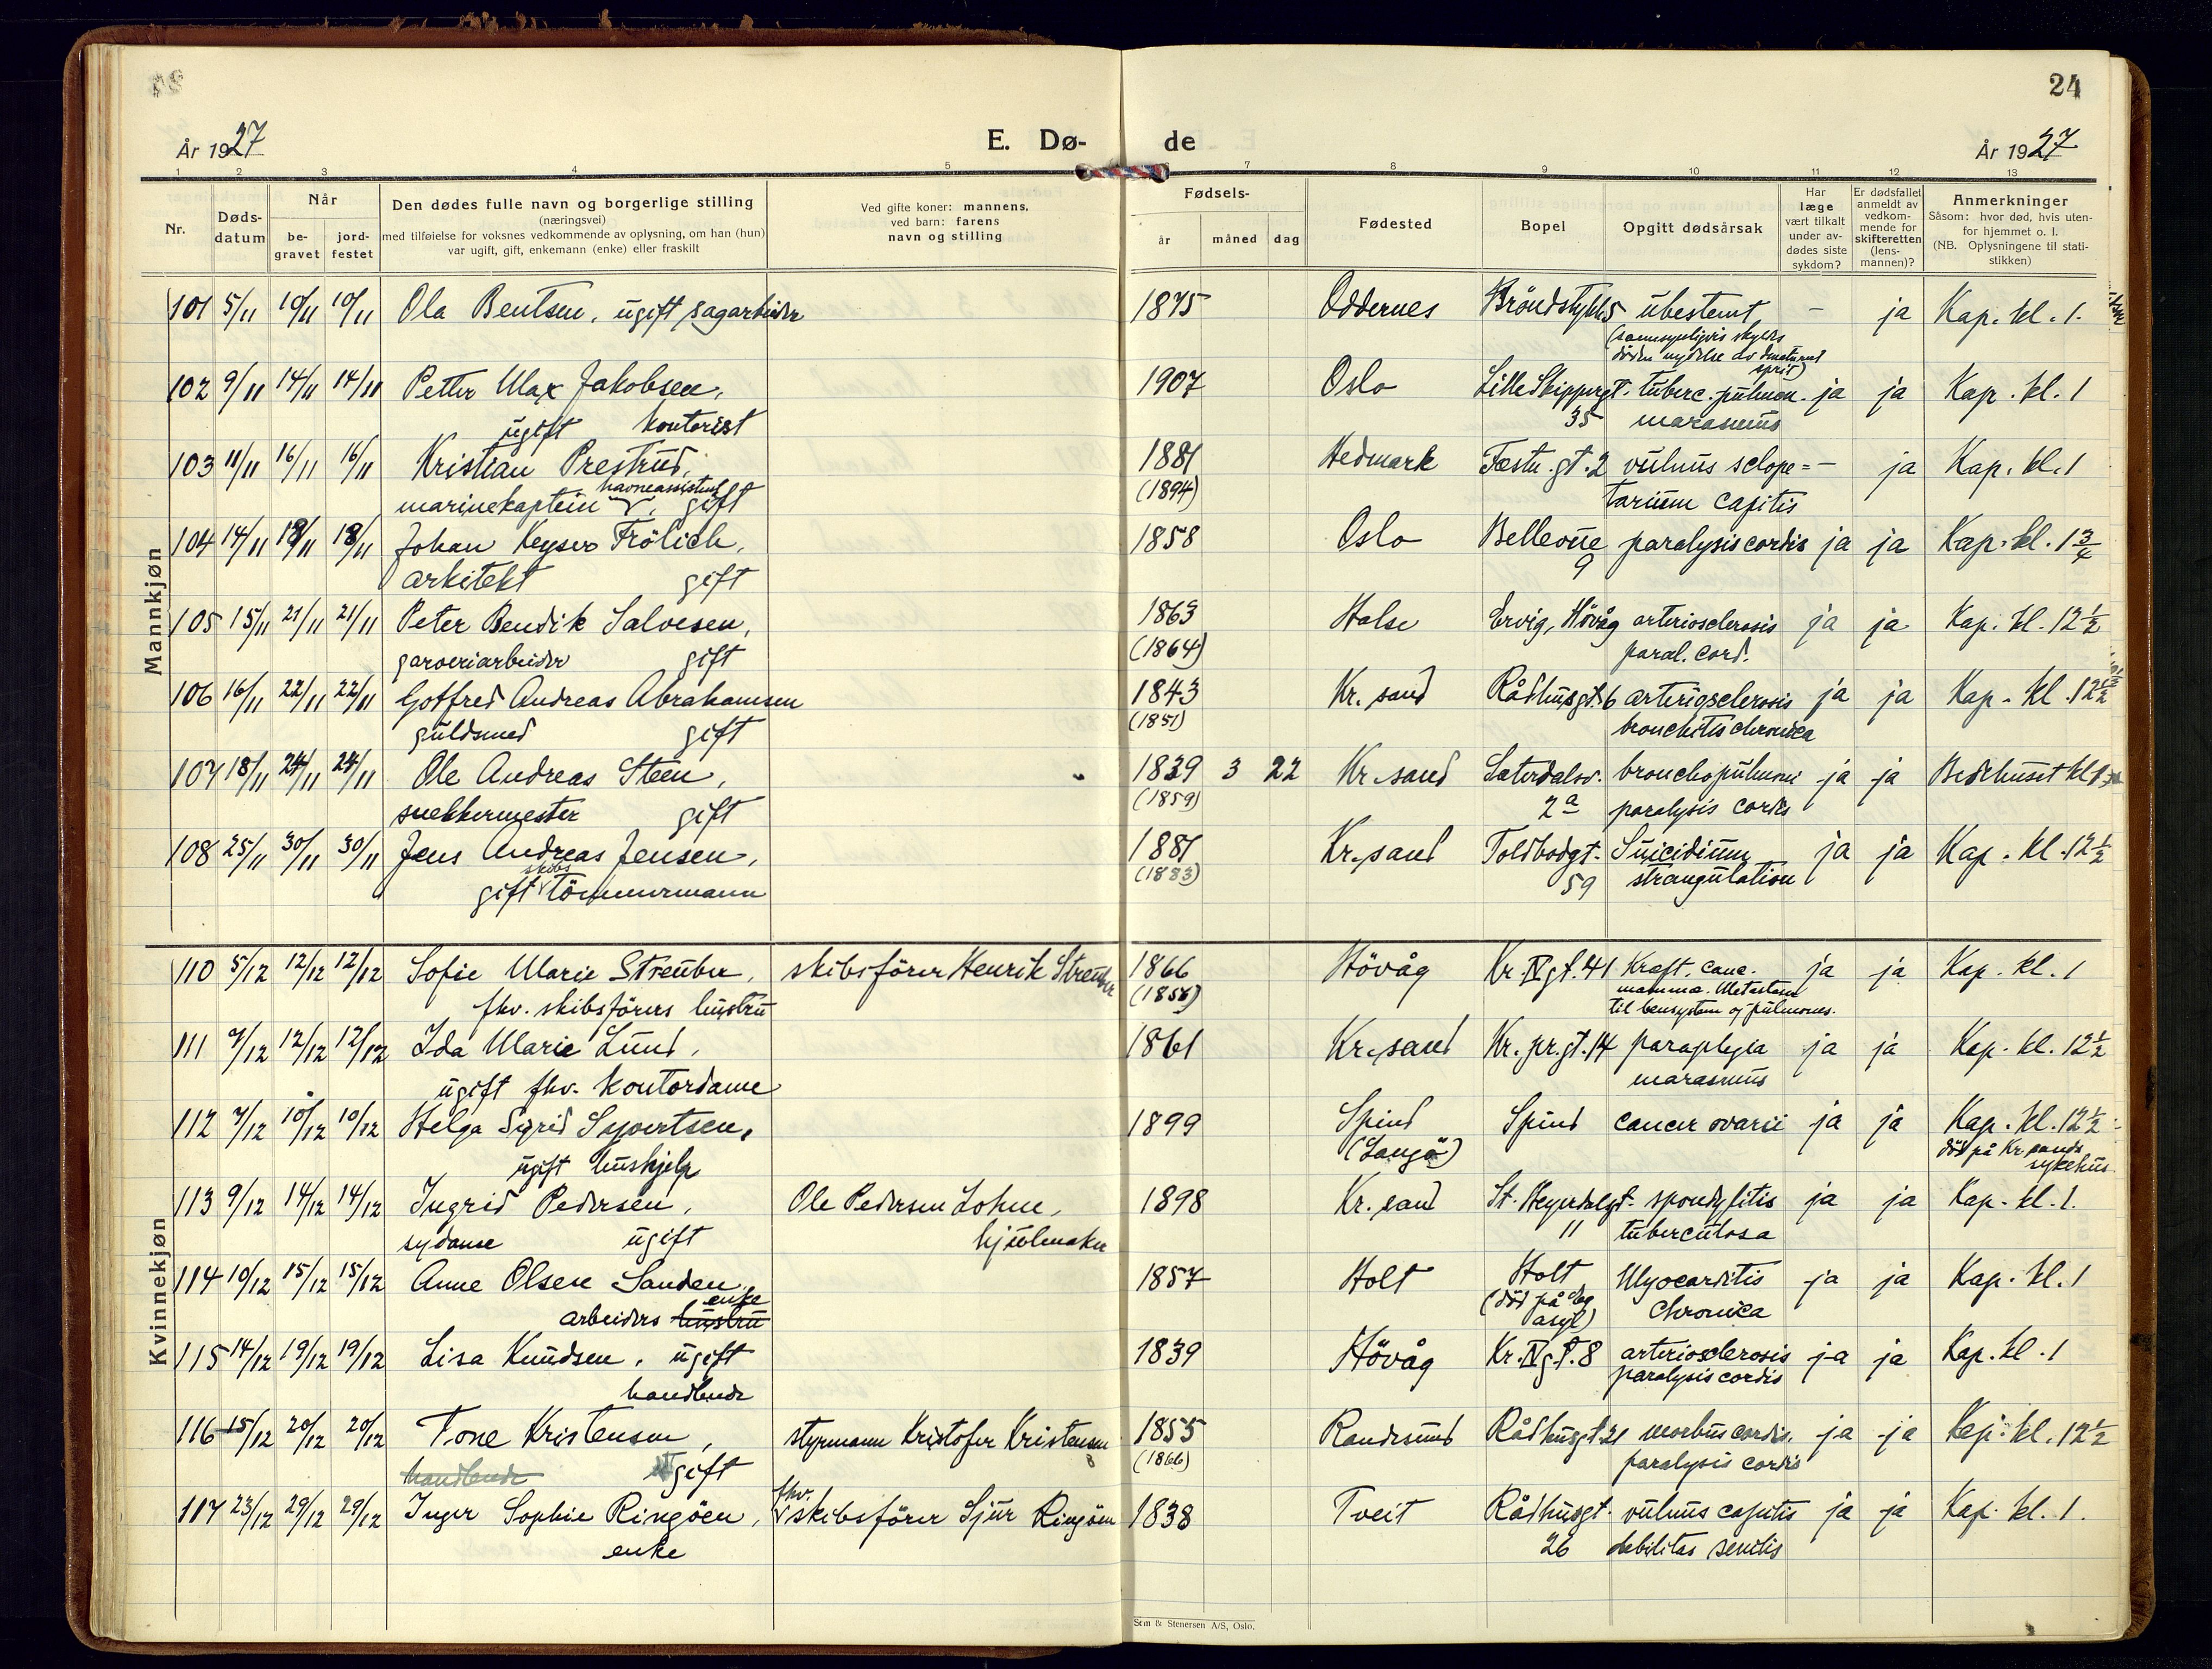 24
År 1927
E. Dø-
de
År 1927
1 2 3 4 5 7 8 9 10 11 12 13
Nr.
Døds-
datum
Når
be-
gravet
jord-
festet
Den dødes fulle navn og borgerlige stilling
(næringsvei)
med tilføielse for voksnes vedkommende av oplysning, om han (hun)
var ugift, gift, enkemann (enke) eller fraskilt
Ved gifte koner: mannens,
ved barn: farens
navn og stilling
Fødsels-
år
måned
dag
Fødested
Bopel
Opgitt dødsårsak
Har
læge
vært tilkalt
under av-
dødes siste
sykdom?
Er dødsfallet
anmeldt av
vedkom-
mende for
skifteretten
(lens-
mannen)?
Anmerkninger
Såsom: hvor død, hvis uten-
for hjemmet o. l.
(NB. Oplysningene til stati-
stikken)
Mannkjøn
101 5/11 10/11 10/11 Ola Bentsen, ugift sagarbeider 1875 Oddernes Bröndstykk 5 ubestemt - ja Kap. kl. 1.
(sannsynligvis skyldes
döden nydelse av denaturert
sprit)
102 9/11 14/11 14/11 Petter Max Jakobsen, 1907 Oslo Lille Skippergt. tuberc. pulmon. ja ja Kap. kl. 1
ugift kontorist 35 marasmus
103 11/11 16/11 16/11 Kristian Prestrud, 1881 Hedmark Festn. gt. 2 vulnus sclope= - ja Kap. kl. 1
havneassistent (1894)
marinekaptein gift tarium capitis
104 14/11 18/11 18/11 Johan Keyser Frölich, 1858 Oslo Bellevue paralysis cordis ja ja Kap. kl. 1 3/4
arkitekt gift 9
105 15/11 21/11 21/11 Peter Bendik Salvesen, 1863 Halse Ervig, Hövåg arteriosclerosis ja ja Kap. kl. 12 1/2
garveriarbeider gift (1864) paral. cord.
106 16/11 22/11 22/11 Gotfred Andreas Abrahamsen 1843 Kr. sand Rådhusgt. 6 arteriosclerosis ja ja Kap. kl. 12 1/2
guldsmed gift (1851) bronchitis chronica
107 18/11 24/11 24/11 Ole Andreas Steen, 1839 3 22 Kr. sand Setesdalsv. bronchopulmoni ja ja Bedehuset kl.
snekkermester gift (1859) 2a paralysis cordis
108 25/11 30/11 30/11 Jens Andreas Jensen, 1881 Kr. sand Toldbodgt. Suicidium ja ja Kap. kl. 12 1/2
skibs (1883)
gift tömmermann 59 strangulation
Kvinnekjøn
110 5/12 12/12 12/12 Sofie Marie Streuber, skibsförer Henrik Streuber 1866 Hövåg Kr. IV gt. 41 Kraft. canc. ja ja Kap. kl. 1
fhv. skibsförers hustru (1856) mamma. Metastase
til bensystem og pulmones.
111 7/12 12/12 12/12 Ida Marie Lund, 1861 Kr. sand Kr. pr. gt. 14 paraplegia ja ja Kap. kl. 12 1/2
ugift fhv. kontordame marasmus
112 7/12 10/12 10/12 Helga Sigrid Syvertsen, 1899 Spind Spind cancer ovarii ja ja Kap. kl. 12 1/2
ugift hushjelp (Langö) död på Kr. sands
sykehus.
113 9/12 14/12 14/12 Ingrid Pedersen, Ole Pedersen Lohne, 1898 Kr. sand St. Heyndalgt. spondylitis ja ja Kap. kl. 1.
sydame ugift hjulmaker 11 tuberculosa
114 10/12 15/12 15/12 Anne Olsen Sanden 1857 Holt Holt Myocarditis ja ja Kap. kl. 1
enke (död på
arbeiders hustru asyl) chronica
115 14/12 19/12 19/12 Lisa Knudsen, ugift 1839 Hövåg Kr. IV gt. 8 arteriosclerosis ja ja Kap. kl. 1
handlende paralysis cordis
116 15/12 20/12 20/12 Tone Kristensen, styrmann Kristofer Kristensen 1855 Randesund Rådhusgt. 21 morbus cordis. ja ja Kap. kl. 12 1/2
handlende gift (1866) paralysis cordis
117 23/12 29/12 29/12 Inger Sophie Ringöen, fhv. skibsförer Sjur Ringöen 1838 Tveit Rådhusgt. vulnus capitis ja ja Kap. kl. 1.
enke 26 debilitas senilis
Sem & Stenersen A/S, Oslo.